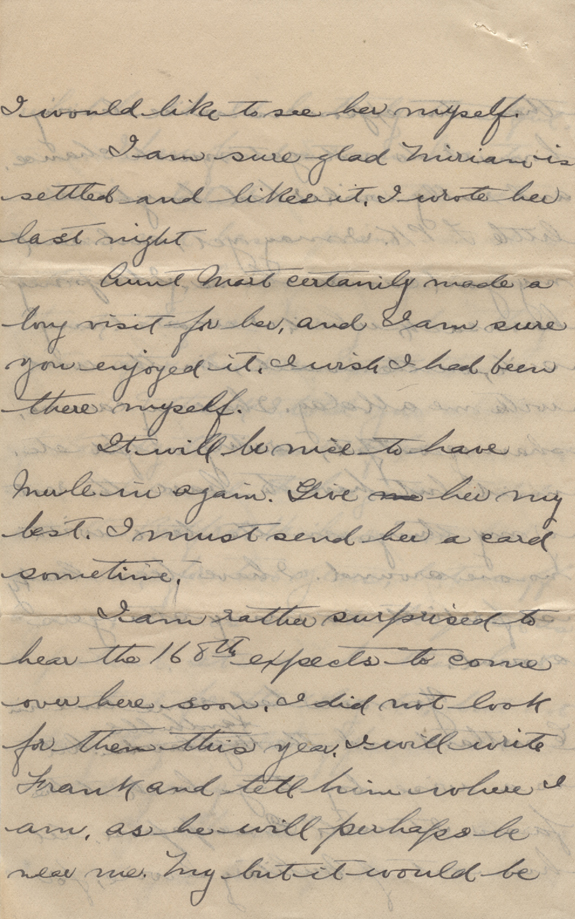 I would like to see her myself.
I am sure glad Miriam is
settled and likes it. I wrote her
last night
Aunt Mart certanily made a
long visit for her, and I am sure
you enjoyed it. I wish I had been
there myself.
It will be nice to have
Merle in again. Give me her my
best. I must send her a card
sometime.
I am rather surprised to
hear the 168th expects to come
over here soon. I did not look
for them this year. I will write
Frank and tell him where I
am, as he will perhaps be
near me. My but it would be